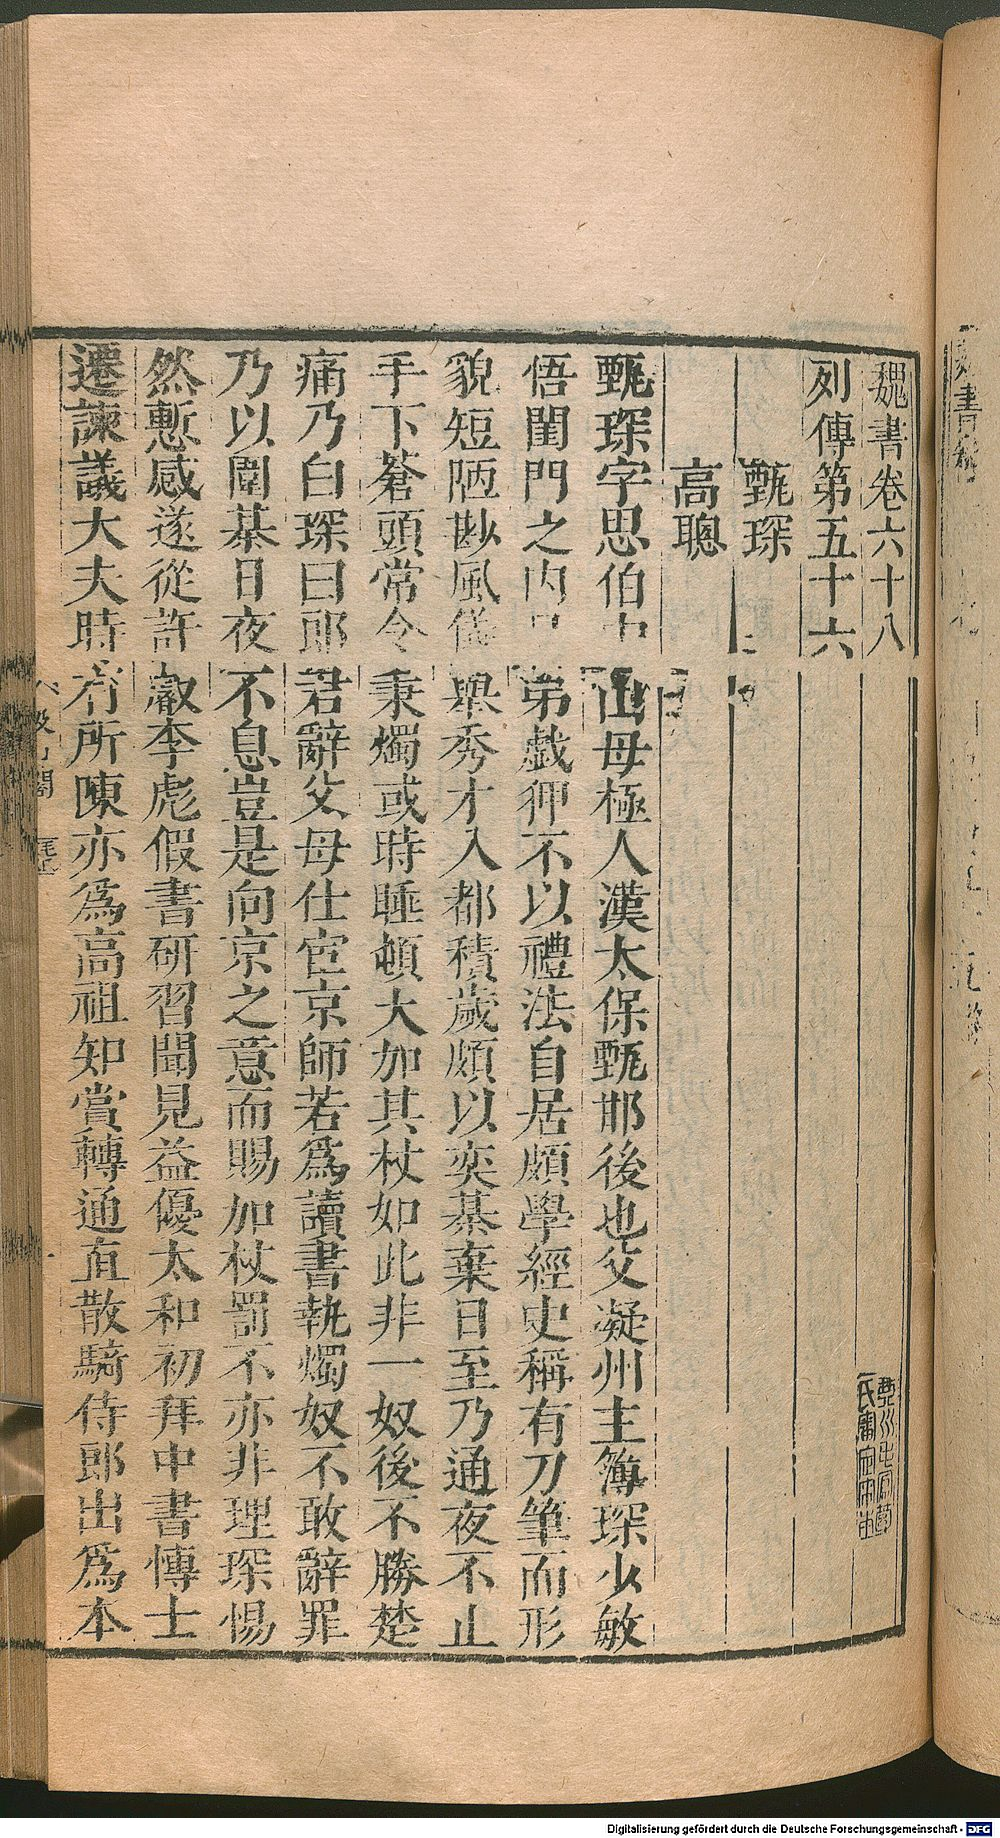 魏書卷六十八
列傳第五十六
甄琛
高聰
甄琛字思伯中山毋極人漢太保甄邯後也父凝州主簿琛少敏
悟閨門之內兄弟戲狎不以禮法自居頗學經史稱有刀筆而形
貌短陋尠風儀舉秀才入都積歲頗以奕棊棄日至乃通夜不止
手下蒼頭常令秉燭或時睡頓大加其杖如此非一奴後不勝楚
痛乃白琛曰郎君辭父母仕宦京師若爲讀書執燭奴不敢辭罪
乃以圍棊日夜不息豈是向京之意而賜加杖罰不亦非理琛惕
然慙感遂從許叡李彪假書研習聞見益優太和初拜中書博士
遷諫議大夫時有所陳亦爲高祖知賞轉通直散騎侍郎出爲本
Digitalisierung gefördert durch die Deutsche Forschungsgemeinschaft - DFG